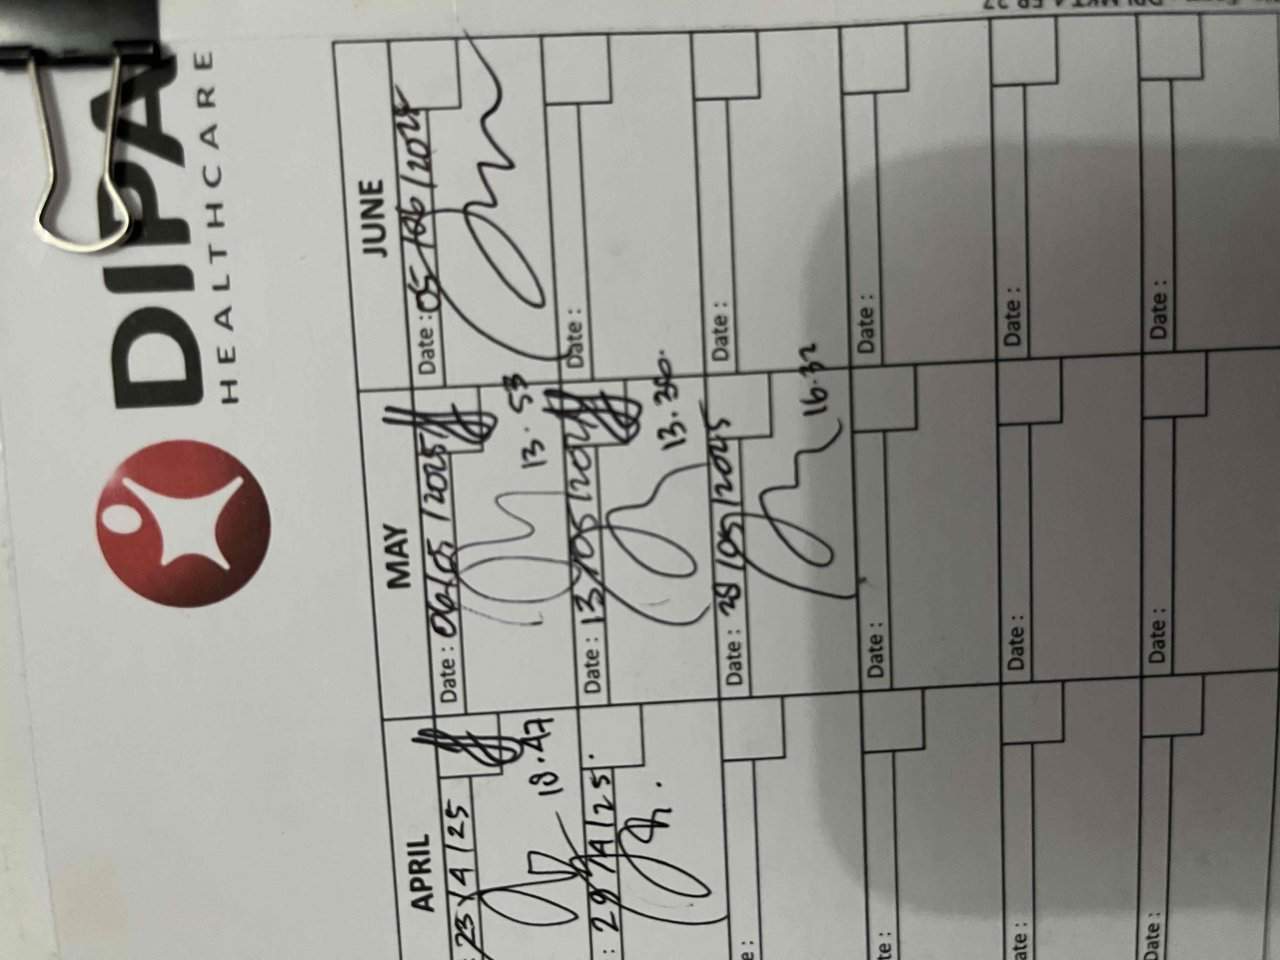 DIPA
HEALTHCARE
APRIL
MAY
JUNE
: 23/4/25
Date : 06/05/2025
Date : 05/06/2025
18.47
13.53
: 29/4/25.
Date : 13/05/2025
Date :
13.30.
e :
Date : 28/05/2025
Date :
16.32
te :
Date :
Date :
ate :
Date :
Date :
Date :
Date :
Date :